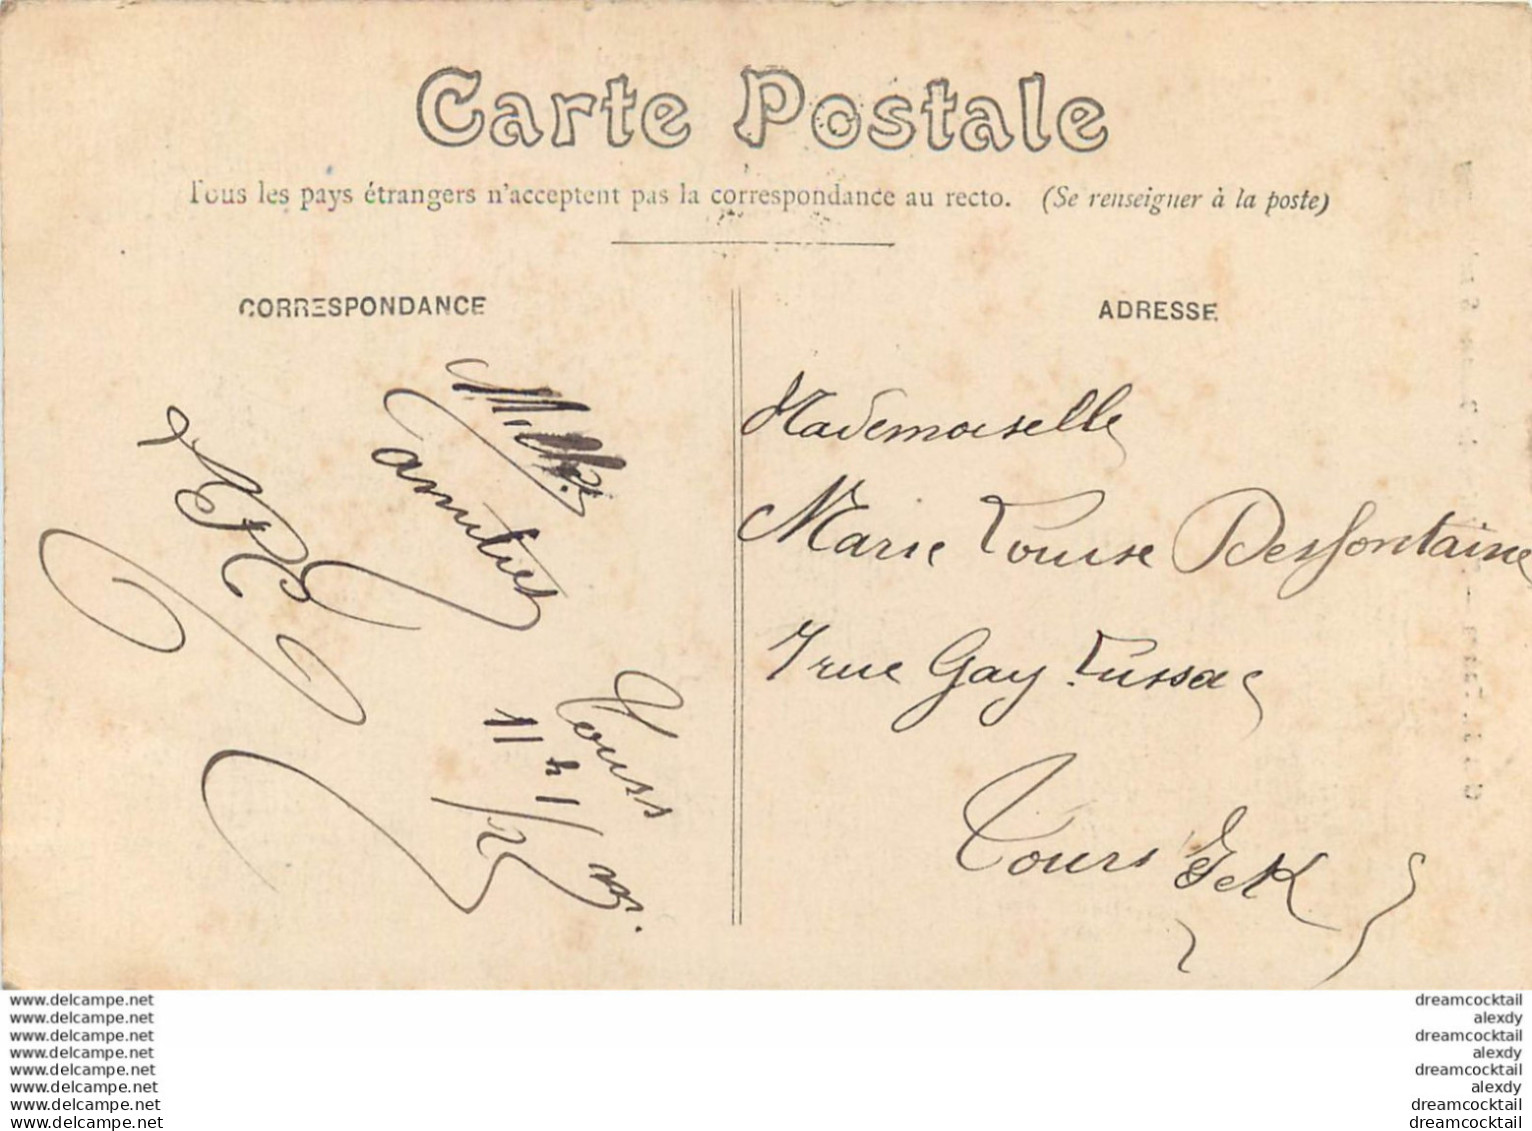 Carte Postale
Tous les pays étrangers n'acceptent pas la correspondance au recto. (Se renseigner à la poste)
CORRESPONDANCE
amitiés
Tours
11 h 1/2 m.
ADRESSE
Mademoiselle
Marie Louise Desfontaine
7 rue Gay Lussac
Tours
www.delcampe.net
www.delcampe.net
www.delcampe.net
www.delcampe.net
www.delcampe.net
www.delcampe.net
www.delcampe.net
www.delcampe.net
dreamcocktail
alexdy
dreamcocktail
alexdy
dreamcocktail
alexdy
dreamcocktail
dreamcocktail